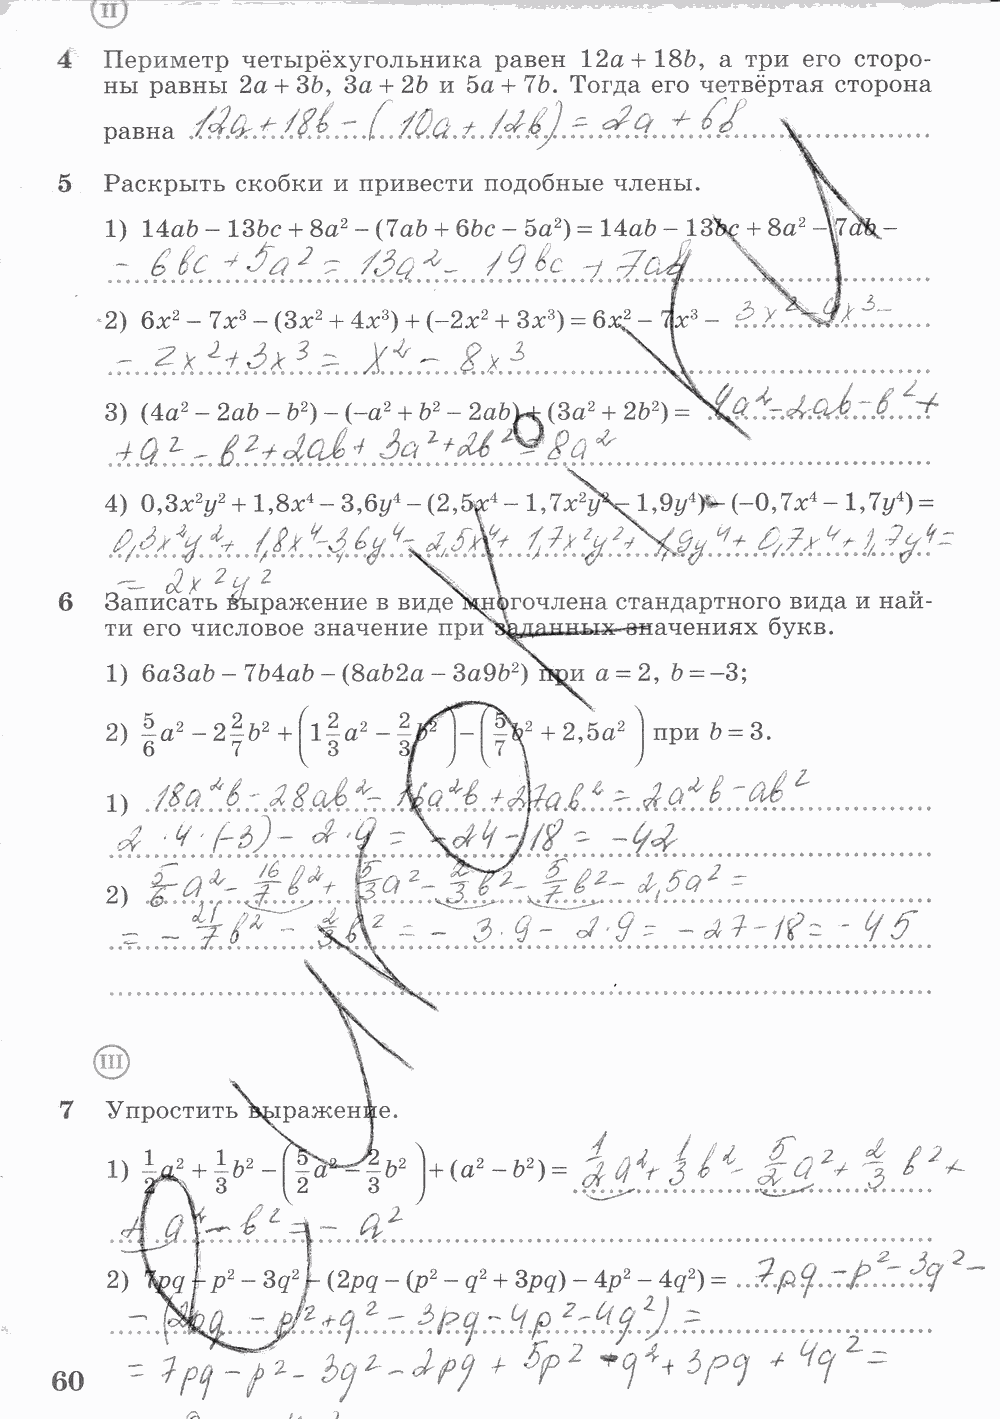 II
4 Периметр четырёхугольника равен 12a + 18b, а три его сторо-
ны равны 2a + 3b, 3a + 2b и 5a + 7b. Тогда его четвёртая сторона
равна 12a + 18b - (10a + 12b) = 2a + 6b
5 Раскрыть скобки и привести подобные члены.
1) 14ab − 13bc + 8a² − (7ab + 6bc − 5a²) = 14ab − 13bc + 8a² − 7ab −
- 6bc + 5a² = 13a² - 19bc + 7ab
2) 6x² − 7x³ − (3x² + 4x³) + (−2x² + 3x³) = 6x² − 7x³ − 3x² - 4x³ -
- 2x² + 3x³ = x² - 8x³
3) (4a² − 2ab − b²) − (−a² + b² − 2ab) + (3a² + 2b²) = 4a² - 2ab - b² +
+ a² - b² + 2ab + 3a² + 2b² = 8a²
4) 0,3x²y² + 1,8x⁴ − 3,6y⁴ − (2,5x⁴ − 1,7x²y² − 1,9y⁴) − (−0,7x⁴ − 1,7y⁴) =
0,3x²y² + 1,8x⁴ - 3,6y⁴ - 2,5x⁴ + 1,7x²y² + 1,9y⁴ + 0,7x⁴ + 1,7y⁴ =
= 2x²y²
6 Записать выражение в виде многочлена стандартного вида и най-
ти его числовое значение при заданных значениях букв.
1) 6a3ab − 7b4ab − (8ab2a − 3a9b²) при a = 2, b = −3;
2) 5/6 a² − 2 2/7 b² + (1 2/3 a² − 2/3 b²) − (5/7 b² + 2,5a²) при b = 3.
1) 18a²b - 28ab² - 16a²b + 27ab² = 2a²b - ab²
2 · 4 · (-3) - 2 · 9 = -24 - 18 = -42
2) 5/6 a² - 16/7 b² + 5/3 a² - 2/3 b² - 5/7 b² - 2,5a² =
= - 21/7 b² - 2/3 b² = - 3·9 - 2·9 = -27 - 18 = -45
III
7 Упростить выражение.
1) 1/2 a² + 1/3 b² − (5/2 a² − 2/3 b²) + (a² − b²) = 1/2 a² + 1/3 b² - 5/2 a² + 2/3 b² +
+ a² - b² = - a²
2) 7pq − p² − 3q² − (2pq − (p² − q² + 3pq) − 4p² − 4q²) = 7pq - p² - 3q² -
- (2pq - p² + q² - 3pq - 4p² - 4q²) =
= 7pq - p² - 3q² - 2pq + 5p² - q² + 3pq + 4q² =
60